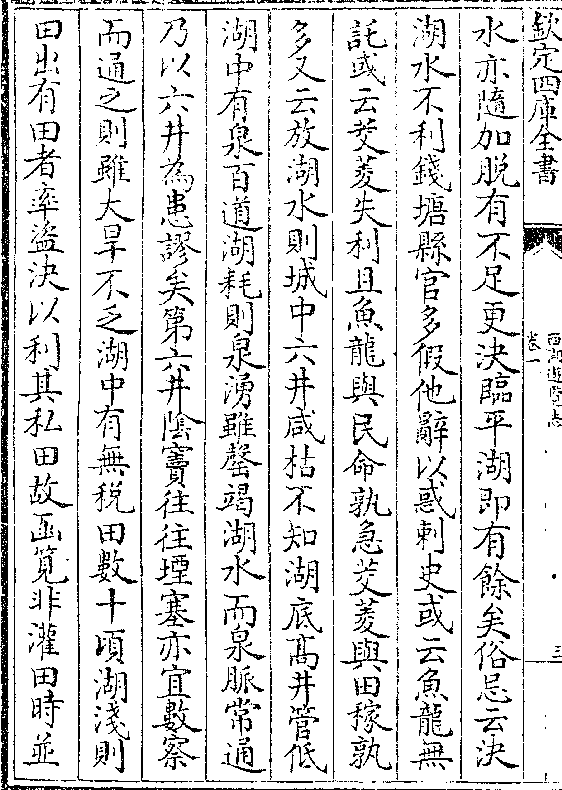 欽定四庫全書
西湖遊覽志
卷一
三
水亦隨加脱有不足更決臨平湖即有餘矣俗忌云決
湖水不利錢塘縣官多假他辭以惑刺史或云魚龍無
託或云茭菱失利且魚龍與民命孰急茭菱與田稼孰
多又云放湖水則城中六井咸枯不知湖底髙井管低
湖中有泉百道湖耗則泉湧雖罄竭湖水而泉脈常通
乃以六井為患謬矣第六井陰竇往往堙塞亦宜數察
而通之則雖大旱不乏湖中有無税田數十頃湖淺則
田出有田者率盜決以利其私田故函筧非灌田時並